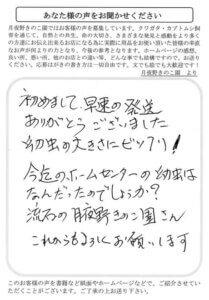 あなた様の声をお聞かせください
月夜野きのこ園ではお客様の声を募集しています。クワガタ・カブトムシ飼
育を通じて、自然との共生、命の大切さ、さまざまな発見と感動をより多く
の方達にお伝え出来るお店になる為に実際に用品をお使い頂いた皆様の率直
なお声が何よりの力となり、今後の参考となります。ホームページの感想、
良い所、悪い所、他のお店との違い、どんな事でも結構ですので、お送りく
ださい。応募はがきの書き方は一切自由です。文でも絵でも大歓迎です！
月夜野きのこ園 より
初めまして、早速の発送
ありがとうございました
幼虫の大きさにビックリ！
今迄のホームセンターの幼虫は
なんだったのでしょうか？
流石の月夜野きのこ園さん
これからもよろしくお願いします
このお客様の声を書籍など紙面やホームページなどで、ご紹介させてい
ただくことがございます。ご了承の上お送り下さい。